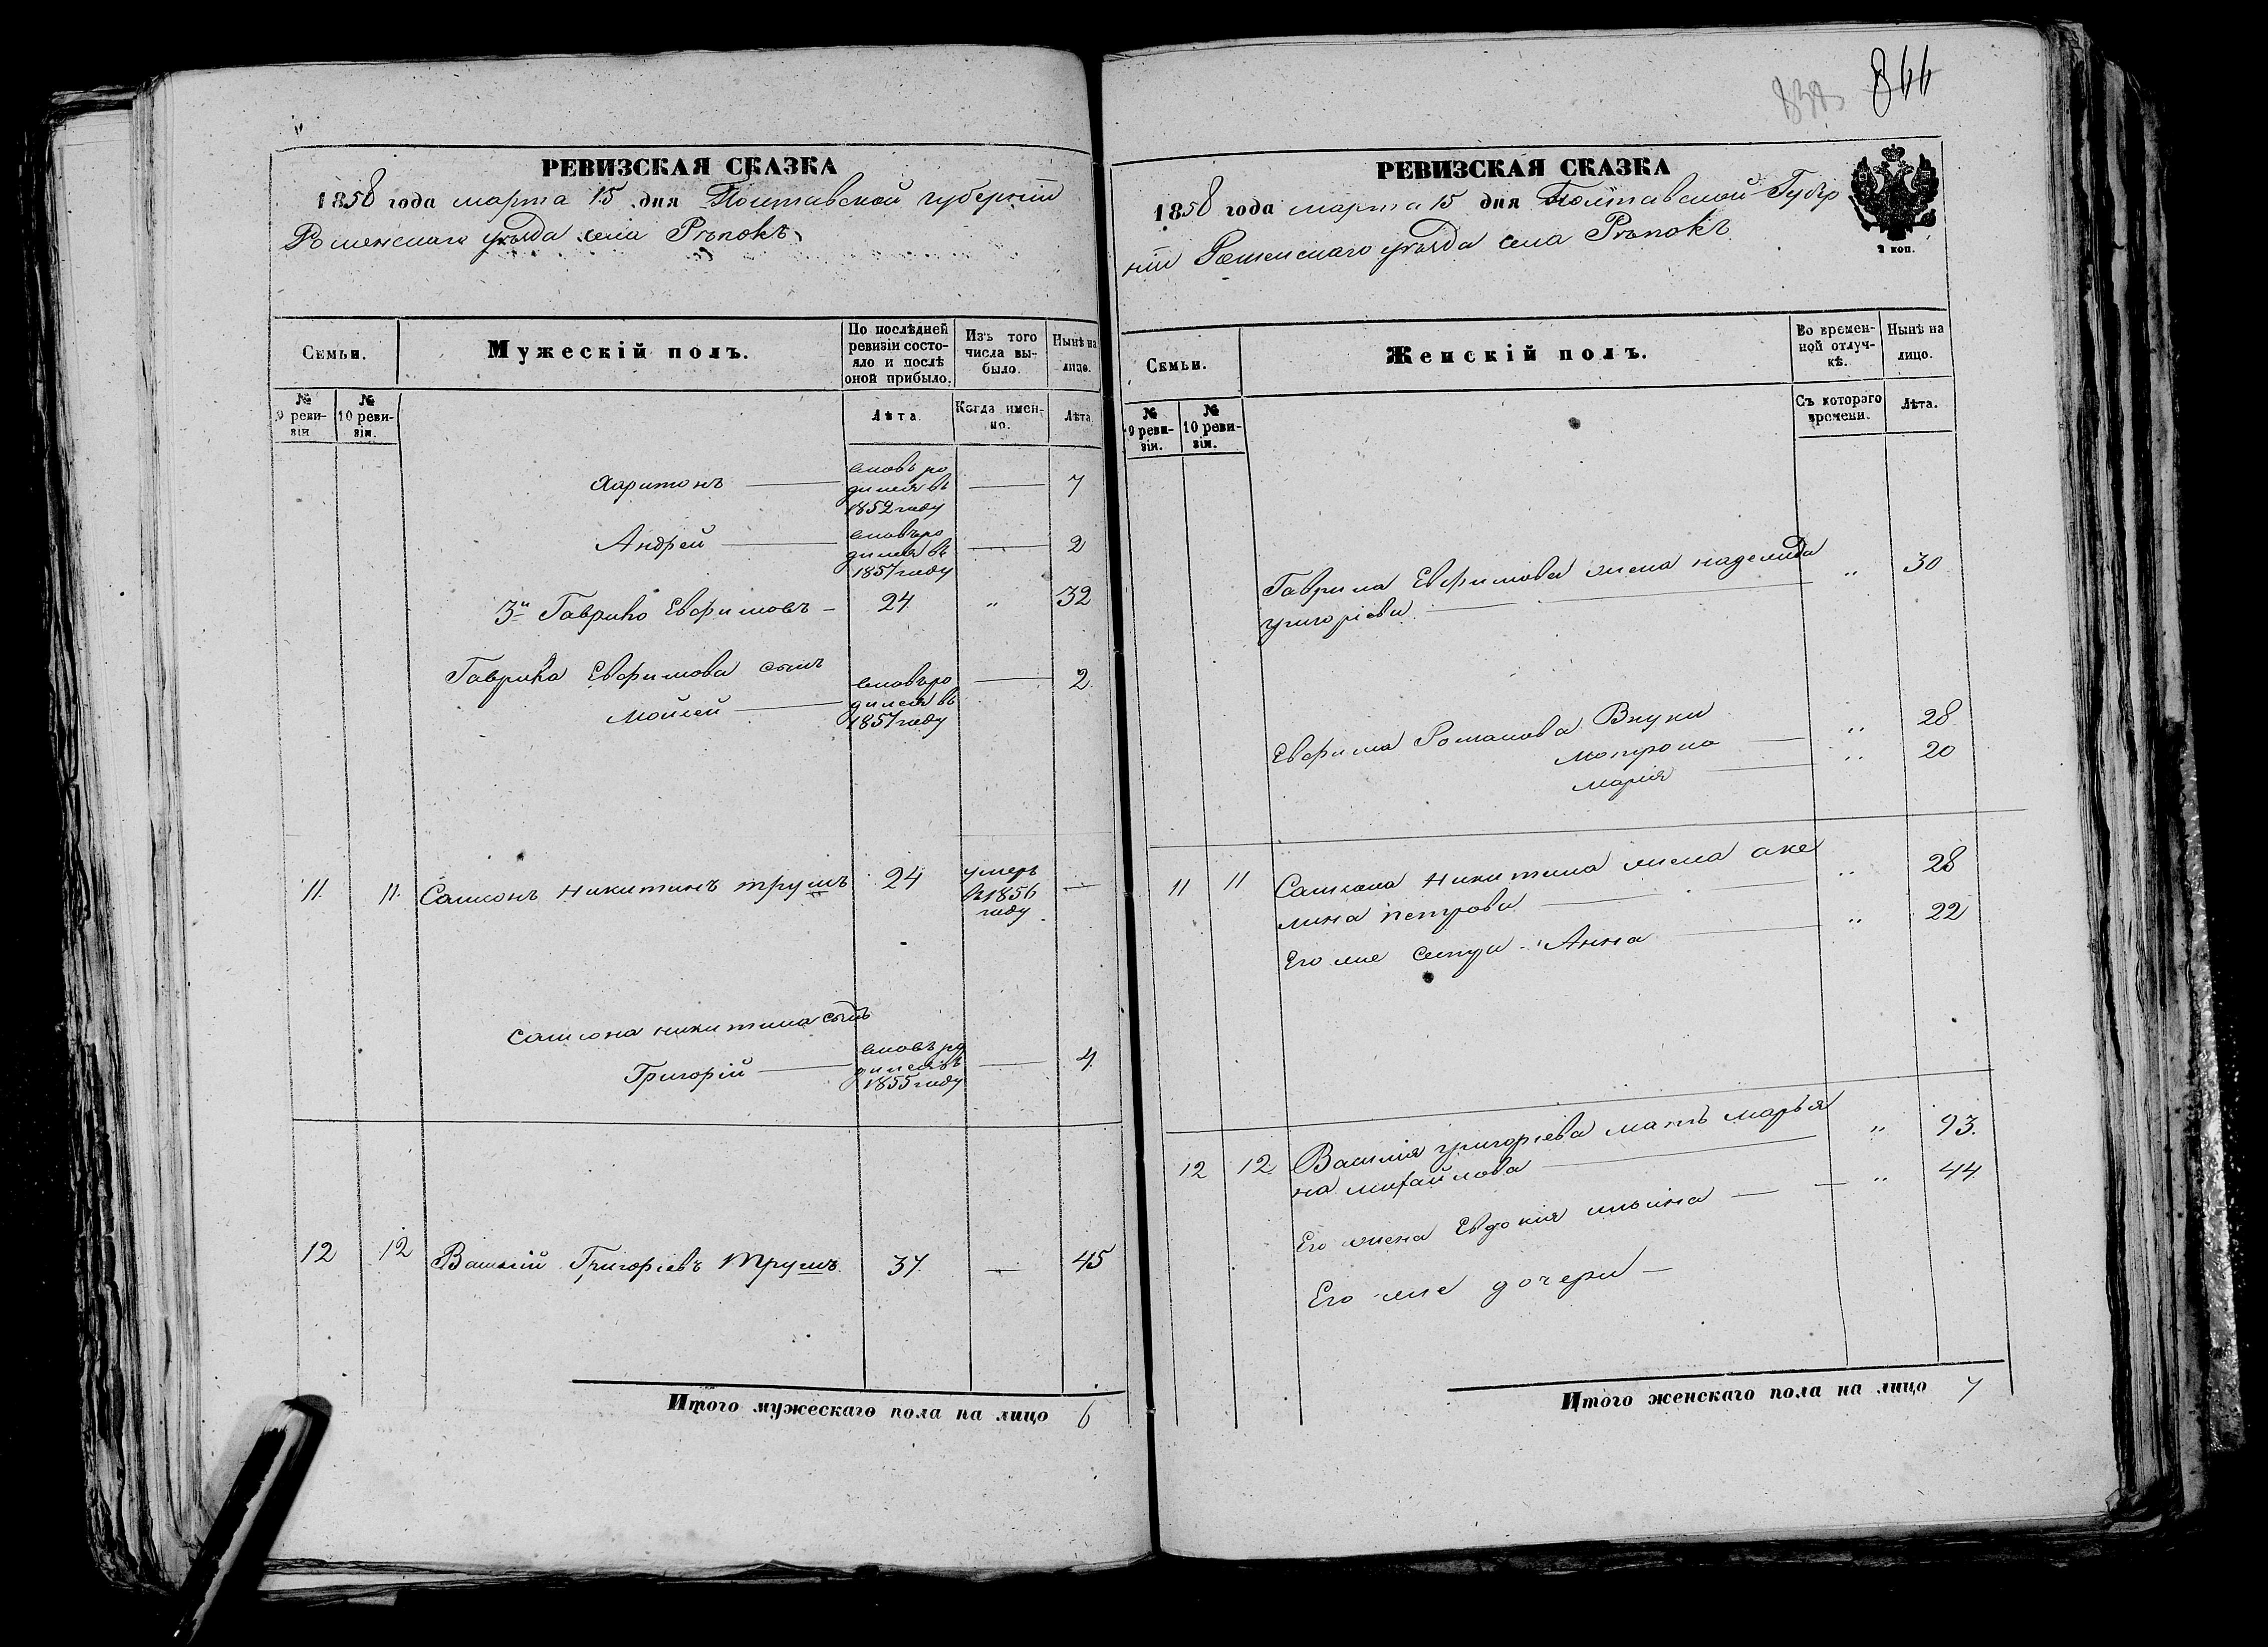 РЕВИЗСКАЯ СКАЗКА
1858 года марта 15 дня Полтавской губерніи
Роменскаго уѣзда села Рѣпокъ
Семьи.
Мужескій полъ.
По послѣдней ревизіи состояло и послѣ оной прибыло.
Изъ того числа выбыло.
Нынѣ на лицо.
№ 9 ревизіи
№ 10 ревизіи.
Лѣта
Когда именно.
Лѣта
Харитонъ — вновь родился въ 1852 году — 7
Андрей — вновь родился въ 1857 году — 2
3й Гаврило Евфимовъ – 24 „ 32
Гаврила Евфимова сынъ
Мойсей — вновь родился въ 1857 году — 2
11. 11. Самсонъ Никитинъ Трушъ 24 умеръ въ 1856 году —
Самсона Никитина сынъ
Григорій — вновь родился въ 1855 году — 4
12 12 Василій Григоріевъ Трушъ 37. — 45
Итого мужескаго пола на лицо 6
844
РЕВИЗСКАЯ СКАЗКА
1858 года марта 15 дня Полтавской Губер
ніи Роменскаго уѣзда села Рѣпокъ
2 коп.
Семьи.
Женскій полъ.
Во временной отлучкѣ.
Нынѣ на лицо.
№ 9 ревизіи.
№ 10 ревизіи.
Съ котораго времени.
Лѣта.
Гаврила Евфимова жена надежда
григоріева — „ 30
Евфима Романова Внуки
Мотрона — „ 28
Марія — „ 20
11 11 Самсона Никитина жена аке
лина петрова — „ 28
Его же сестра Анна — „ 22
12 12 Василія григоріева мать марья
на михайлова — „ 93.
Его жена Евдокія ильина — „ 44
Его же дочери —
Итого женскаго пола на лицо 7